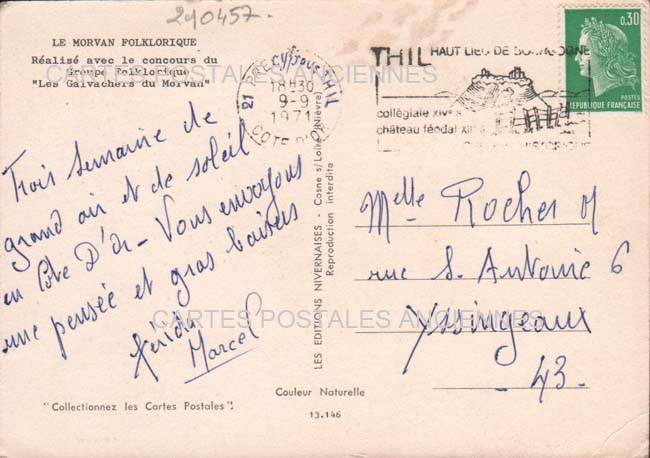 210457.
LE MORVAN FOLKLORIQUE
Réalisé avec le concours du
Groupe Folklorique
"Les Galvachers du Morvan"
CARTES POSTALES ANCIENNES
21 PRECY SOUS THIL
18H30
9-9
1971
COTE D'OR
THIL HAUT LIEU DE BOURGOGNE
collégiale XIVe s
château féodal XIIe s
0,30
POSTES
REPUBLIQUE FRANÇAISE
Trois Semaine de
grand air et de soleil
en Côte D'Or - Vous envoyons
une pensée et gros baisers
Marcel
"Collectionnez les Cartes Postales"
LES EDITIONS NIVERNAISES - Cosne s/Loire (Nièvre)
Reproduction interdite
Couleur Naturelle
13.146
Melle Rocher M
rue S. Antonie 6
CARTES POSTALES ANCIENNES
Yssingeaux
- 43 -